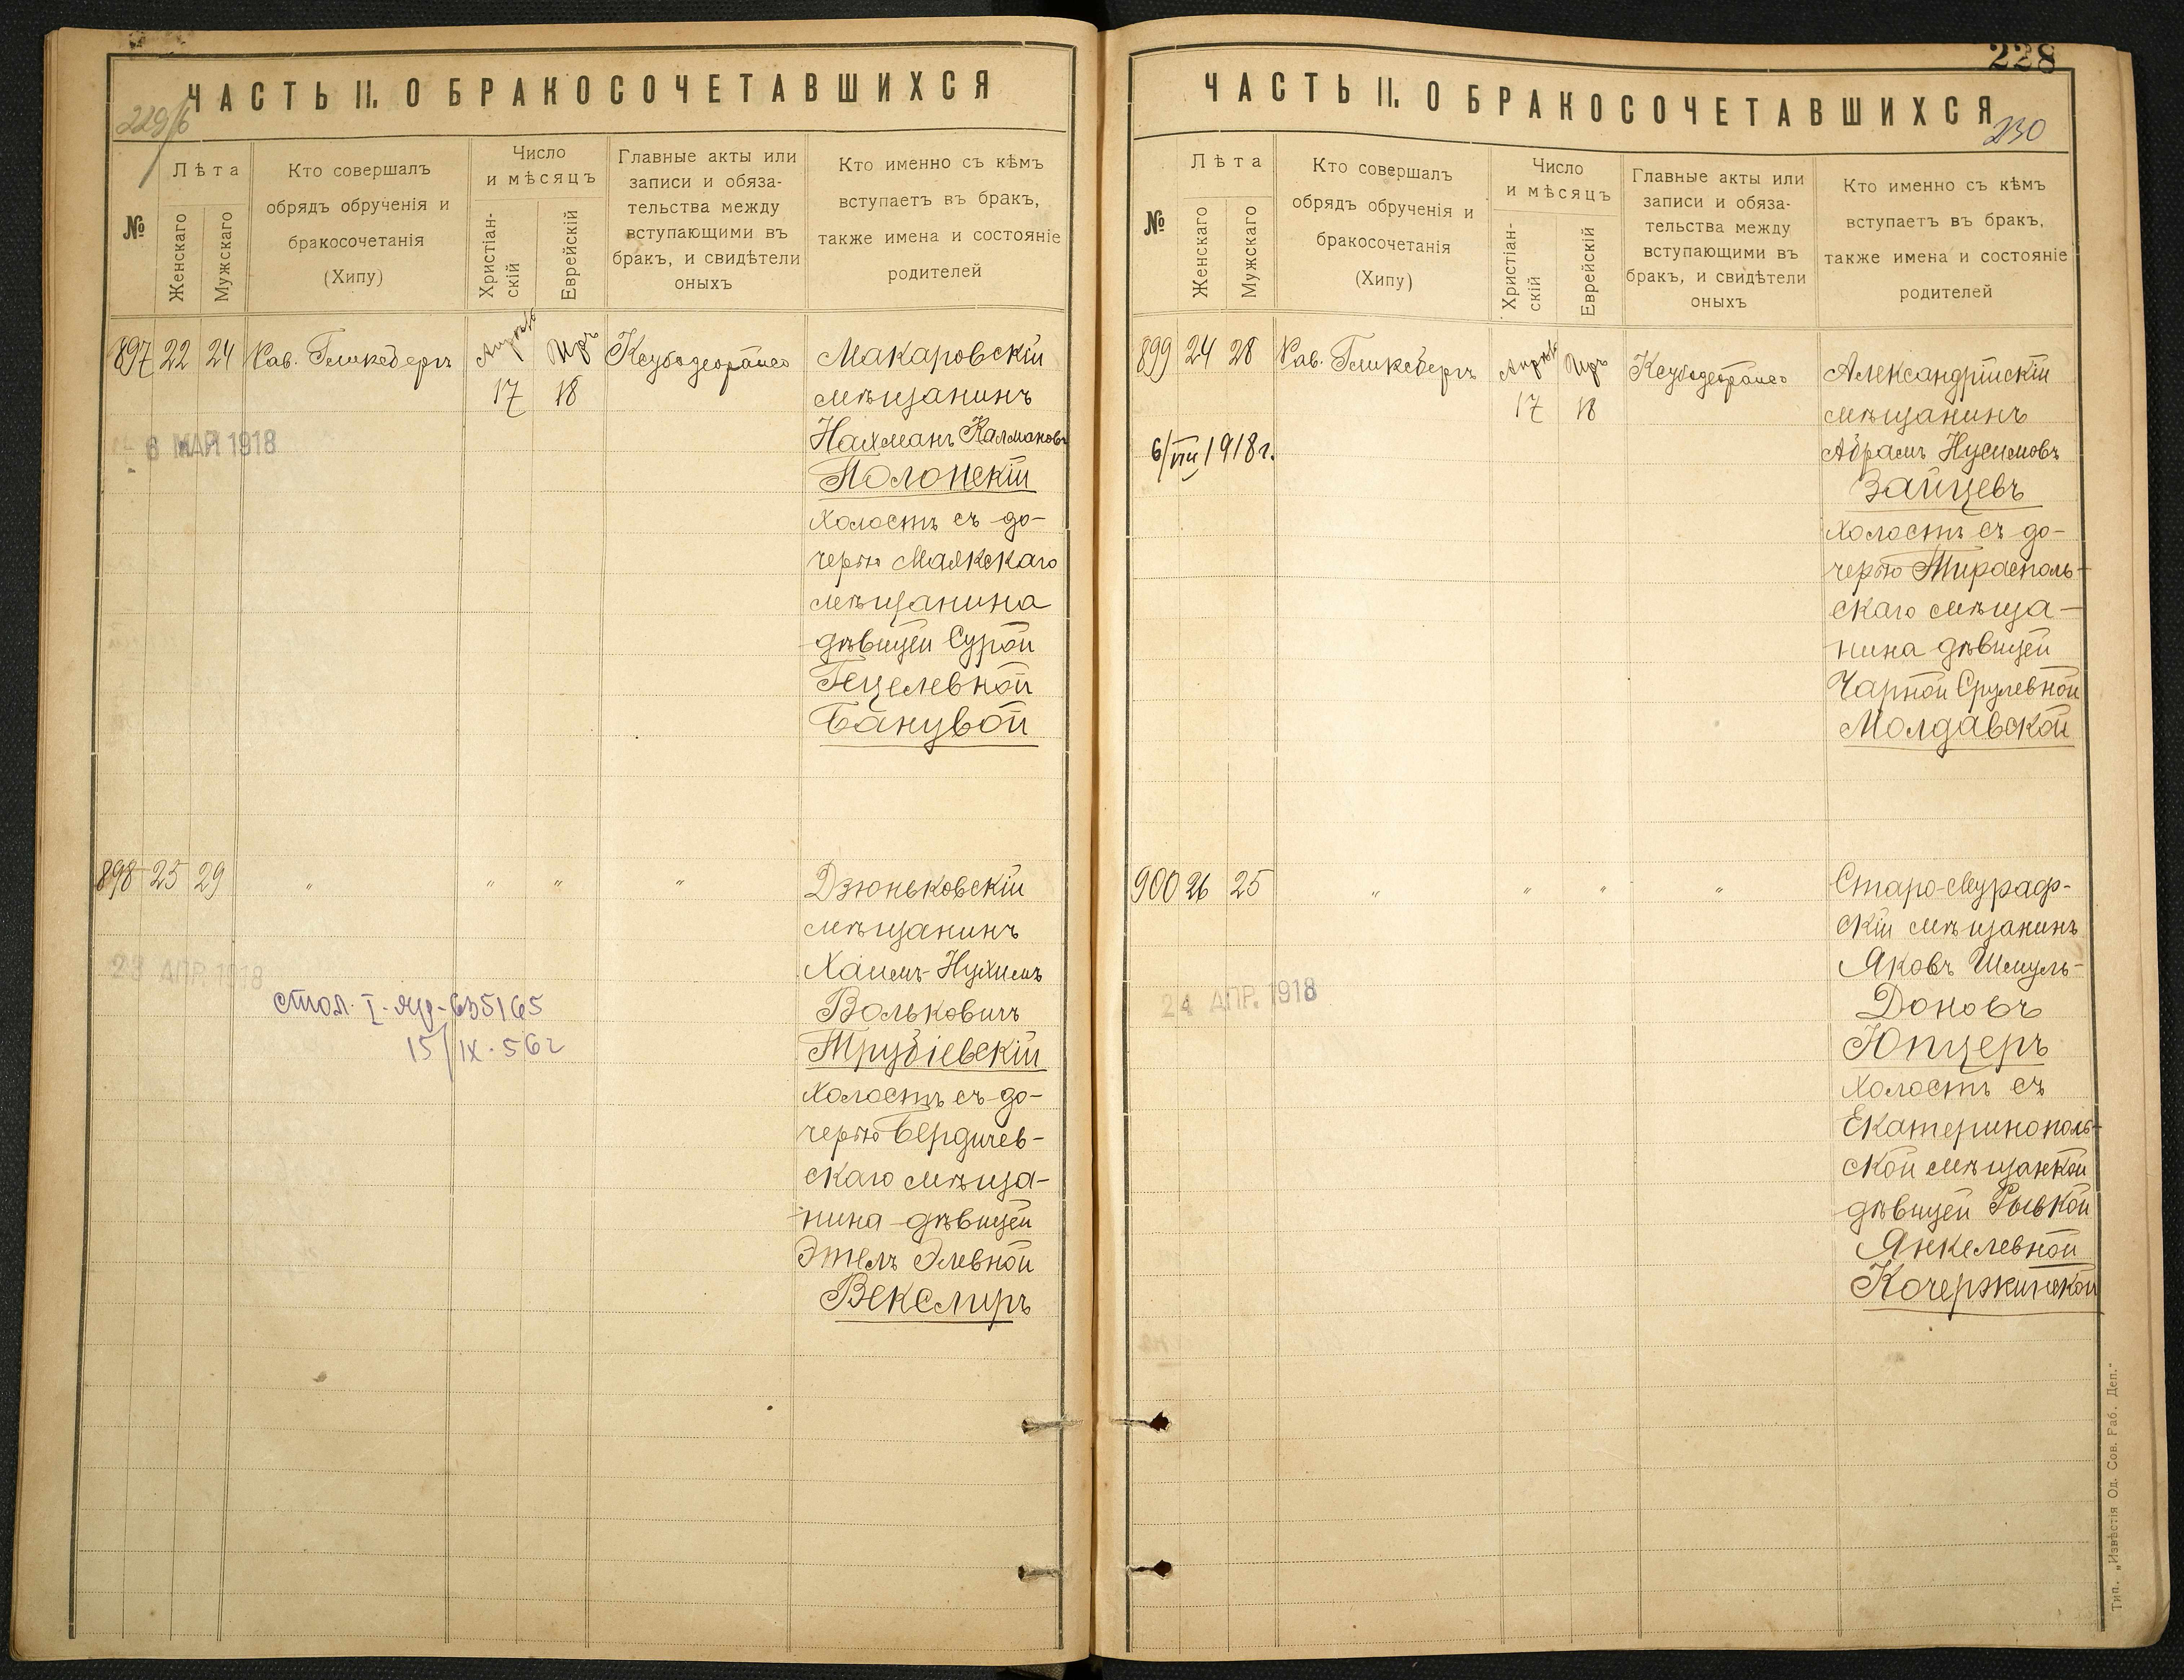 ЧАСТЬ II. О БРАКОСОЧЕТАВШИХСЯ
№
Лѣта
Женскаго
Мужскаго
Кто совершалъ
обрядъ обрученія и
бракосочетанія
(Хипу)
Число
и мѣсяцъ
Христіан-
скій
Еврейскій
Главные акты или
записи и обяза-
тельства между
вступающими въ
бракъ, и свидѣтели
оныхъ
Кто именно съ кѣмъ
вступаетъ въ бракъ,
также имена и состояніе
родителей
897 22 24 Рав. Гликсбергъ Апрѣль 17 Иръ 18
Макаровскій
мѣщанинъ
Нахманъ Калмановъ
Полонскій
холостъ съ до-
черью Маякскаго
мѣщанина
дѣвицей Сурой
Гецелевной
Банувой
6 МАЯ 1918
898 25 29 " " " "
Дзюньковскій
мѣщанинъ
Хаимъ-Нухимъ
Вольковичъ
Трубіевскій
холостъ съ до-
черью Бердичев-
скаго мѣща-
нина дѣвицей
Этель Элевной
Векслиръ
23 АПР. 1918
15/IX. 56г
228
ЧАСТЬ II. О БРАКОСОЧЕТАВШИХСЯ
230
№
Лѣта
Женскаго
Мужскаго
Кто совершалъ
обрядъ обрученія и
бракосочетанія
(Хипу)
Число
и мѣсяцъ
Христіан-
скій
Еврейскій
Главные акты или
записи и обяза-
тельства между
вступающими въ
бракъ, и свидѣтели
оныхъ
Кто именно съ кѣмъ
вступаетъ въ бракъ,
также имена и состояніе
родителей
899 24 28 Рав. Гликсбергъ Апрѣль 17 Иръ 18
Александрійскій
мѣщанинъ
Абрамъ Нусимовъ
Зайцевъ
холостъ съ до-
черью Тирасполь-
скаго мѣща-
нина дѣвицей
Чарной Срулевной
Молдавской
6/VIII 1918г.
900 26 25 " " " "
Старо-Мураф-
скій мѣщанинъ
Яковъ Шмуль-
Доновъ
Юпцеръ
холостъ съ
Екатеринополь-
ской мѣщанкой
дѣвицей Рывкой
Янкелевной
Кочержинской
24 АПР. 1918
Тип. „Извѣстія Од. Сов. Раб. Деп."